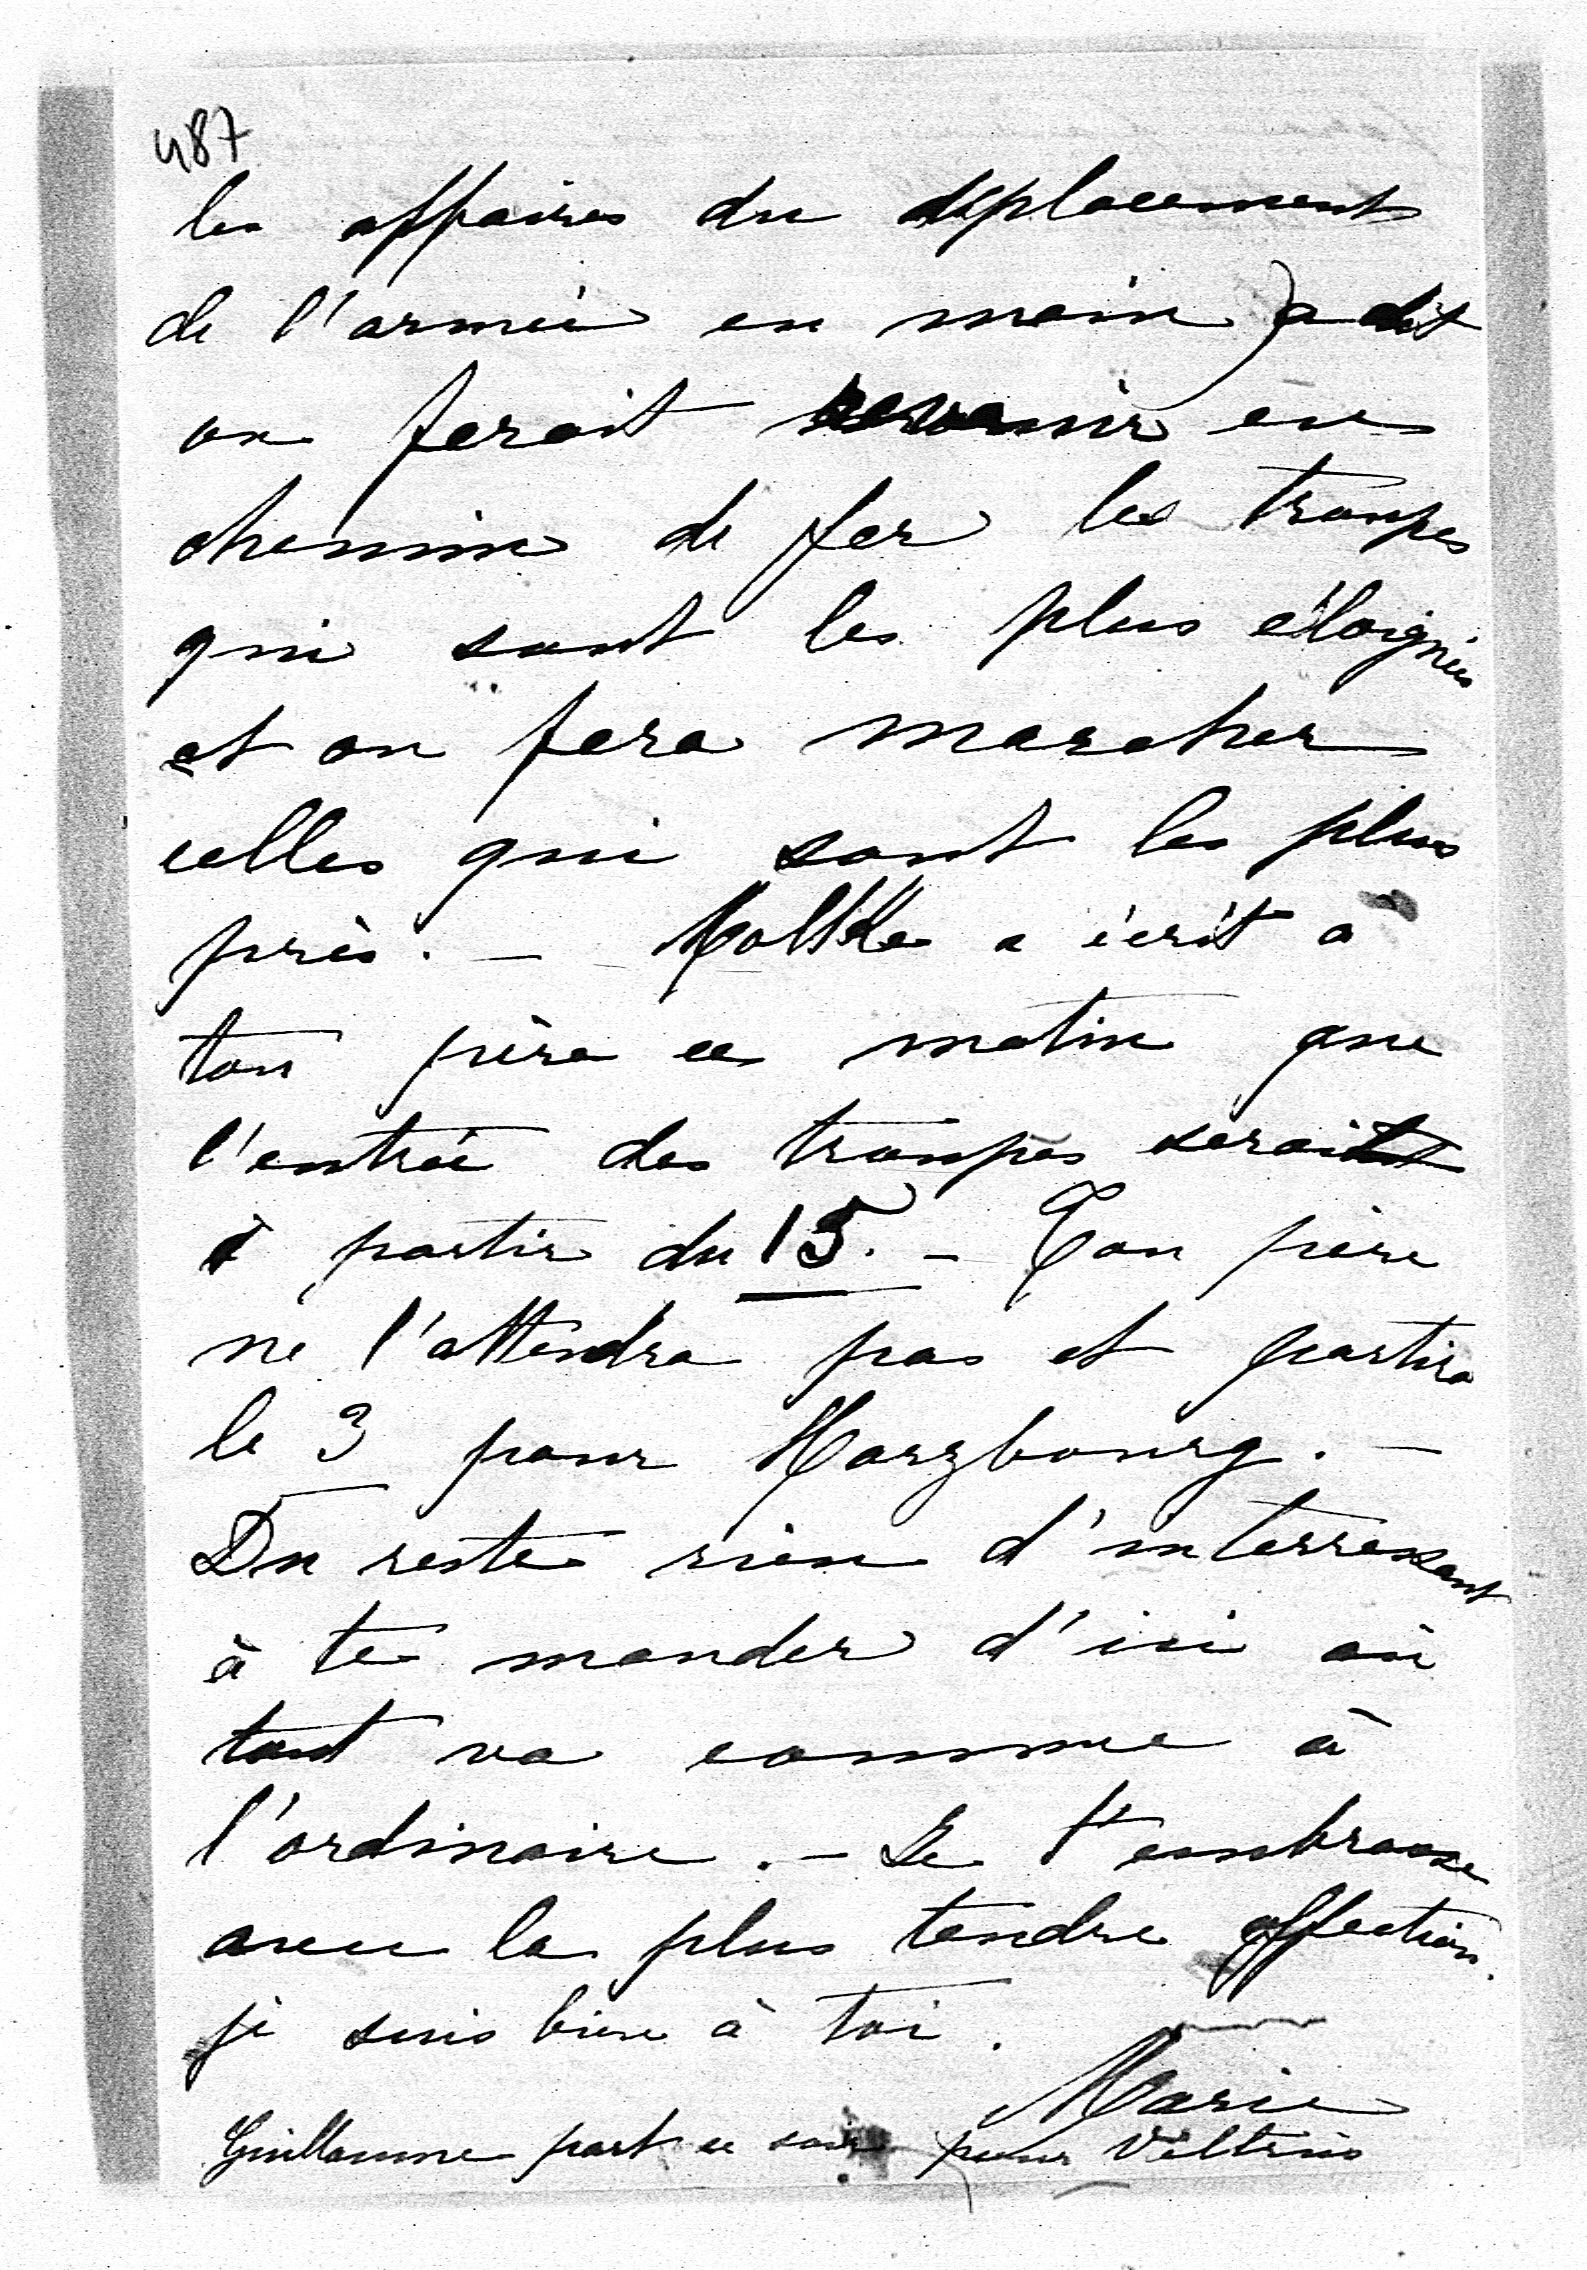 487
les affaires du deplacement
de l'armée en main) a dit
on ferait revenir en
chemin de fer les troupes
qui sont les plus éloignées
et on fera marcher
celles qui sont les plus
près. - Moltke a écrit à
ton père ce matin que
l'entrée des troupes serait
à partir du 15. - Ton père
ne l'attendra pas et partira
le 3 pour Harzbourg. -
Du reste rien d'interressant
à te mander d'ici où
tout va comme à
l'ordinaire. - Je t'embrasse
avec la plus tendre affection.
je suis bien à toi.
Marie
Guillaume part ce soir pour Viltrus